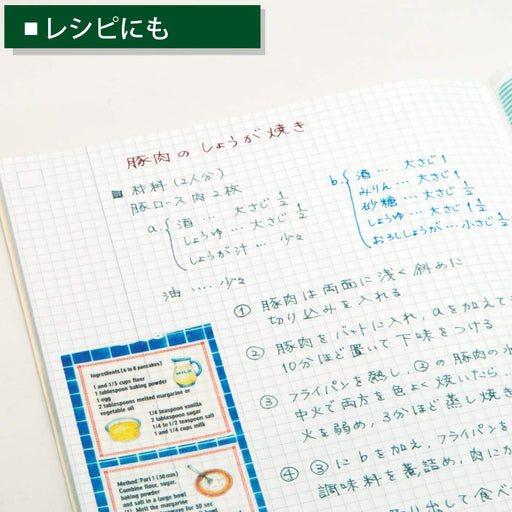 ■ レシピにも
豚肉のしょうが焼き
■ 材料(2人分)
豚ロース肉2枚
a 酒… 大さじ1/2
しょうゆ… 大さじ1/2
しょうが汁… 少々
油…. 少々
b 酒… 大さじ1
みりん… 大さじ1
砂糖… 大さじ1/2
しょうゆ… 大さじ1 1/2
おろししょうが… 小さじ1/2
① 豚肉は両面に浅く斜めに
切り込みを入れる
② 豚肉をバットに入れ、aを加えて
10分ほど置いて下味をつける
③ フライパンを熱し、②の豚肉の
中火で両方を色よく焼いたら、
火を弱め、3分ほど蒸し焼き
④ ③にbを加え、フライパンを
調味料を煮詰め、肉にか
り出して食べ
Ingredients (6 to 8 pancakes)
1 and 1/5 cups flour
1 tablespoon baking powder
1 egg
2 tablespoons melted margarine or
vegetable oil
1/4 teaspoon vanilla
2 tablespoon sugar
1/4 to 1/2 teaspoon salt
1 and 1/4 cups milk
MILK
Method: Part 1 (30 min)
Combine flour, sugar,
baking powder
and salt in a large bowl
Melt the margarine
for 30 sec